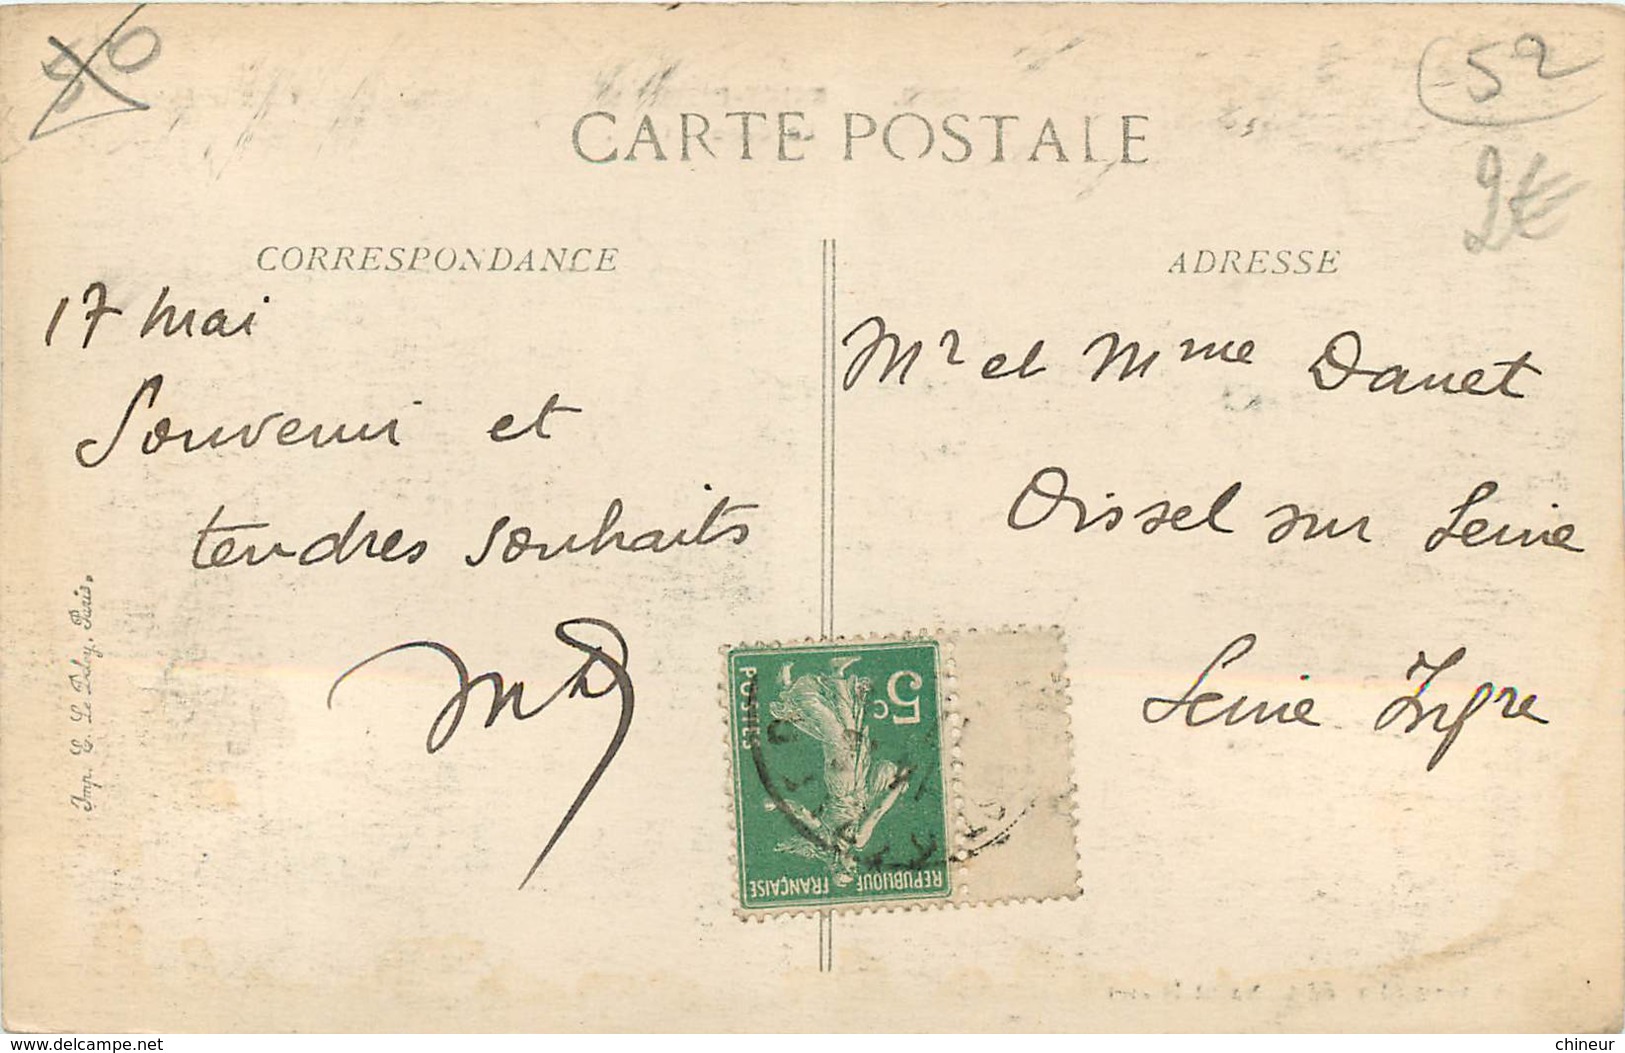 50
52
2€
CARTE POSTALE
CORRESPONDANCE
ADRESSE
17 mai
Souvenir et
tendres souhaits
Mr et Mme Danet
Oissel sur Seine
Seine Infre
Imp. E. Le Deley, Paris.
5c
POSTES
REPUBLIQUE FRANÇAISE
www.delcampe.net
chineur